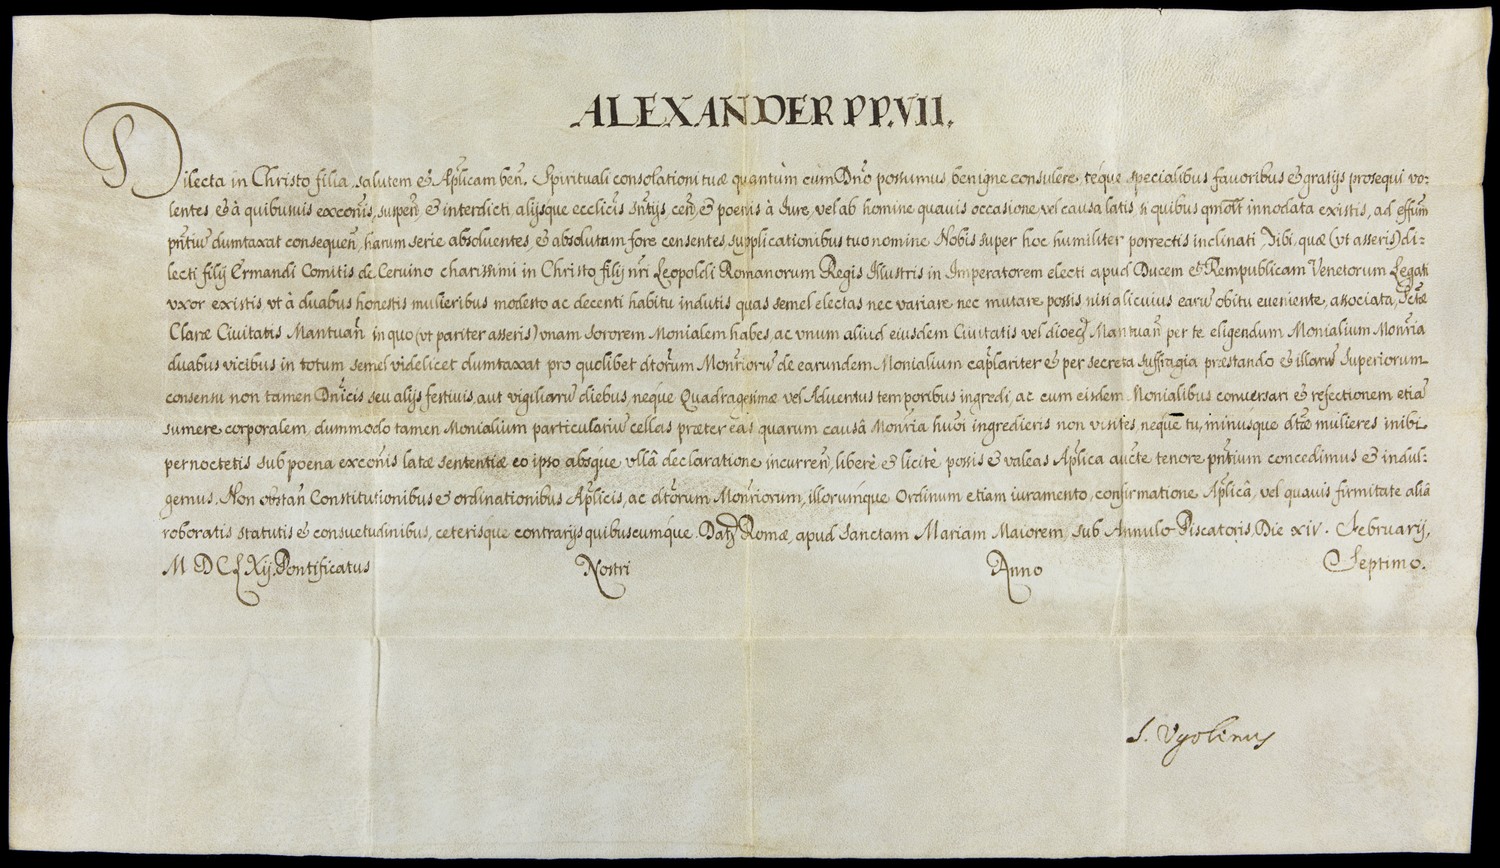 ALEXANDER PP. VII.
Dilecta in Christo filia, salutem & Aplicam ben. Spirituali consolationi tuæ quantùm cùm Dno possumus, benigne consulere, téque specialibus favoribus & gratijs prosequi vo-
lentes & à quibusuis exconis, suspen, & interdicti, alijsque ecclicis sntijs, cen, & poenis à Iure, vel ab homine quauis occasione, vel causa latis, si quibus qmolt innodata existis, ad effum
pntiu dumtaxat consequen, harum serie absoluentes, & absolutam fore censentes, supplicationibus tuo nomine Nobis super hoc humiliter porrectis inclinati, Tibi, quæ (vt asseris) di-
lecti filij Ermandi Comitis de Ceruino charissimi in Christo filij nri Leopoldi Romanorum Regis Illustris in Imperatorem electi apud Ducem & Rempublicam Venetorum Legati
vxor existis, vt à duabus honestis mulieribus modesto ac decenti habitu indutis quas semel electas nec variare nec mutare possis nisi alicuius earu obitu eueniente, associata, Sctæ
Claræ Ciuitatis Mantuan in quo (vt pariter asseris) vnam sororem Monialem habes, ac vnum aliud eiusdem Ciuitatis vel dioec Mantuan per te eligendum Monialium Monria
duabus vicibus in totum semel videlicet dumtaxat pro quolibet dtorum Monrioru de earundem Monialium caplariter & per secreta suffragia præstando & illaru Superiorum
consensu non tamen Dnicis seu alijs festiuis, aut vigiliaru diebus, néque Quadragesimæ vel Aduentus temporibus ingredi, ac cum eisdem Monialibus conuersari & refectionem etia
sumere corporalem, dummodo tamen Monialium particulariu cellas præter eas quarum causâ Monria huoi ingredieris non visites, neque tu, minúsque dtæ mulieres inibi
pernoctetis sub poena exconis latæ sententiæ eo ipso absque vllâ declaratione incurren, liberè & licitè possis & valeas Aplica aucte tenore pntium concedimus & indul-
gemus. Non obstan Constitutionibus & ordinationibus Aplicis, ac dtorum Monriorum, illorúmque Ordinum etiam iuramento, confirmatione Aplicâ, vel quauis firmitate aliâ
roboratis statutis & consuetudinibus, ceterisque contrarijs quibuscumque. Dat Romæ, apud Sanctam Mariam Maiorem, sub Annulo Piscatoris, Die xiv. Februarij,
M D C L Xij. Pontificatus Nostri Anno Septimo.
S. Vgolinus